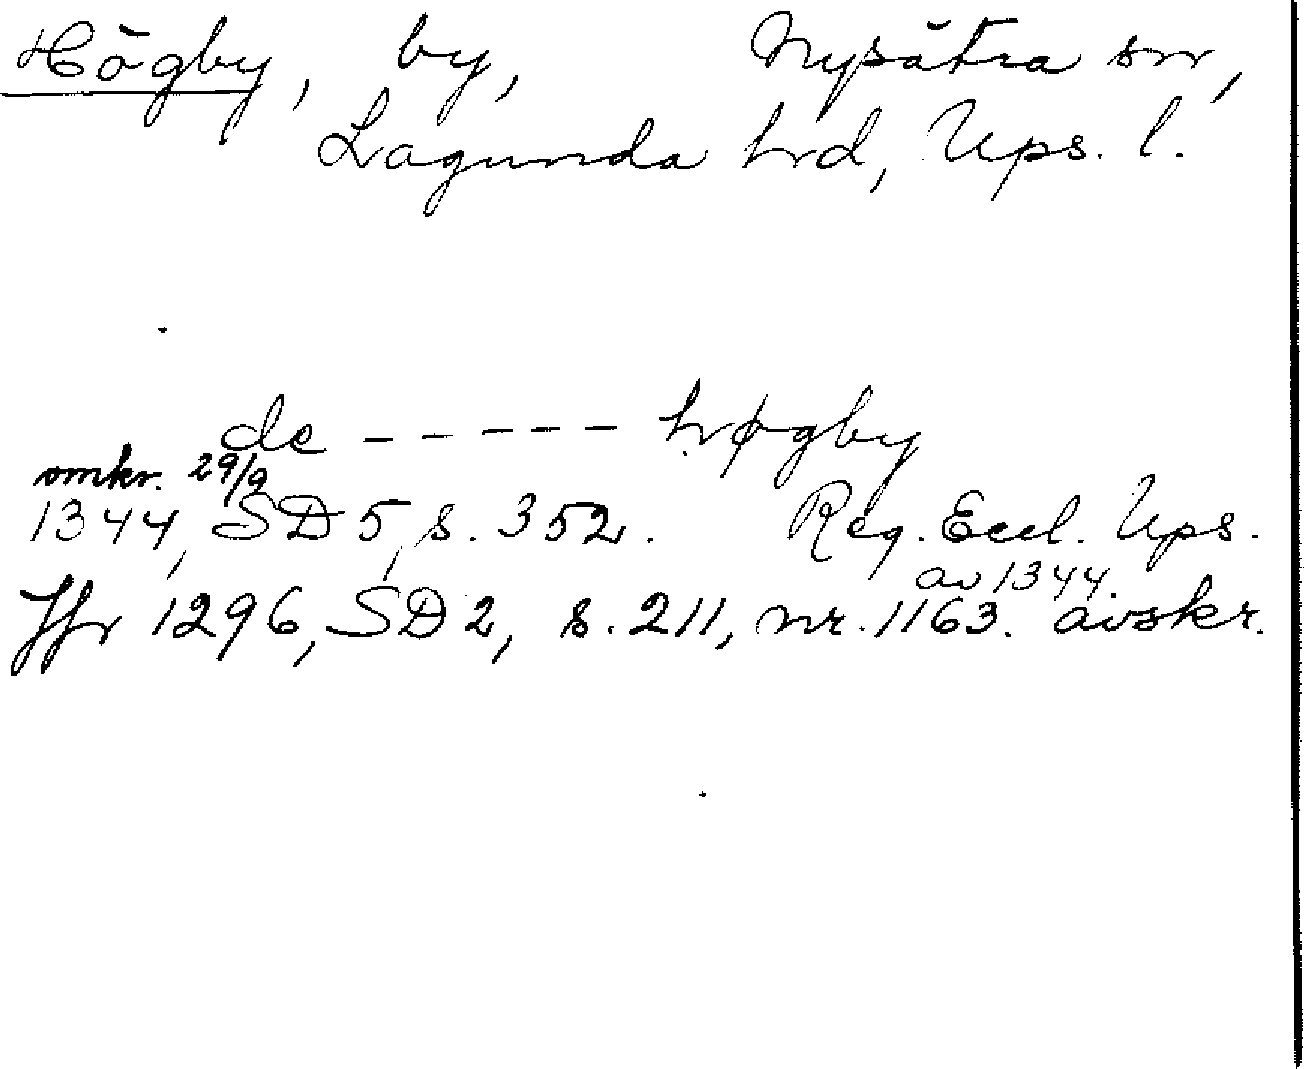 Högby, by, Nysätra sn,
Lagunda hrd, Ups. l.
de ----- høgby
omkr. 29/9
1344, SD 5, s. 352. Reg. Eccl. Ups.
av 1344.
Jfr 1296, SD 2, s. 211, nr. 1163. avskr.